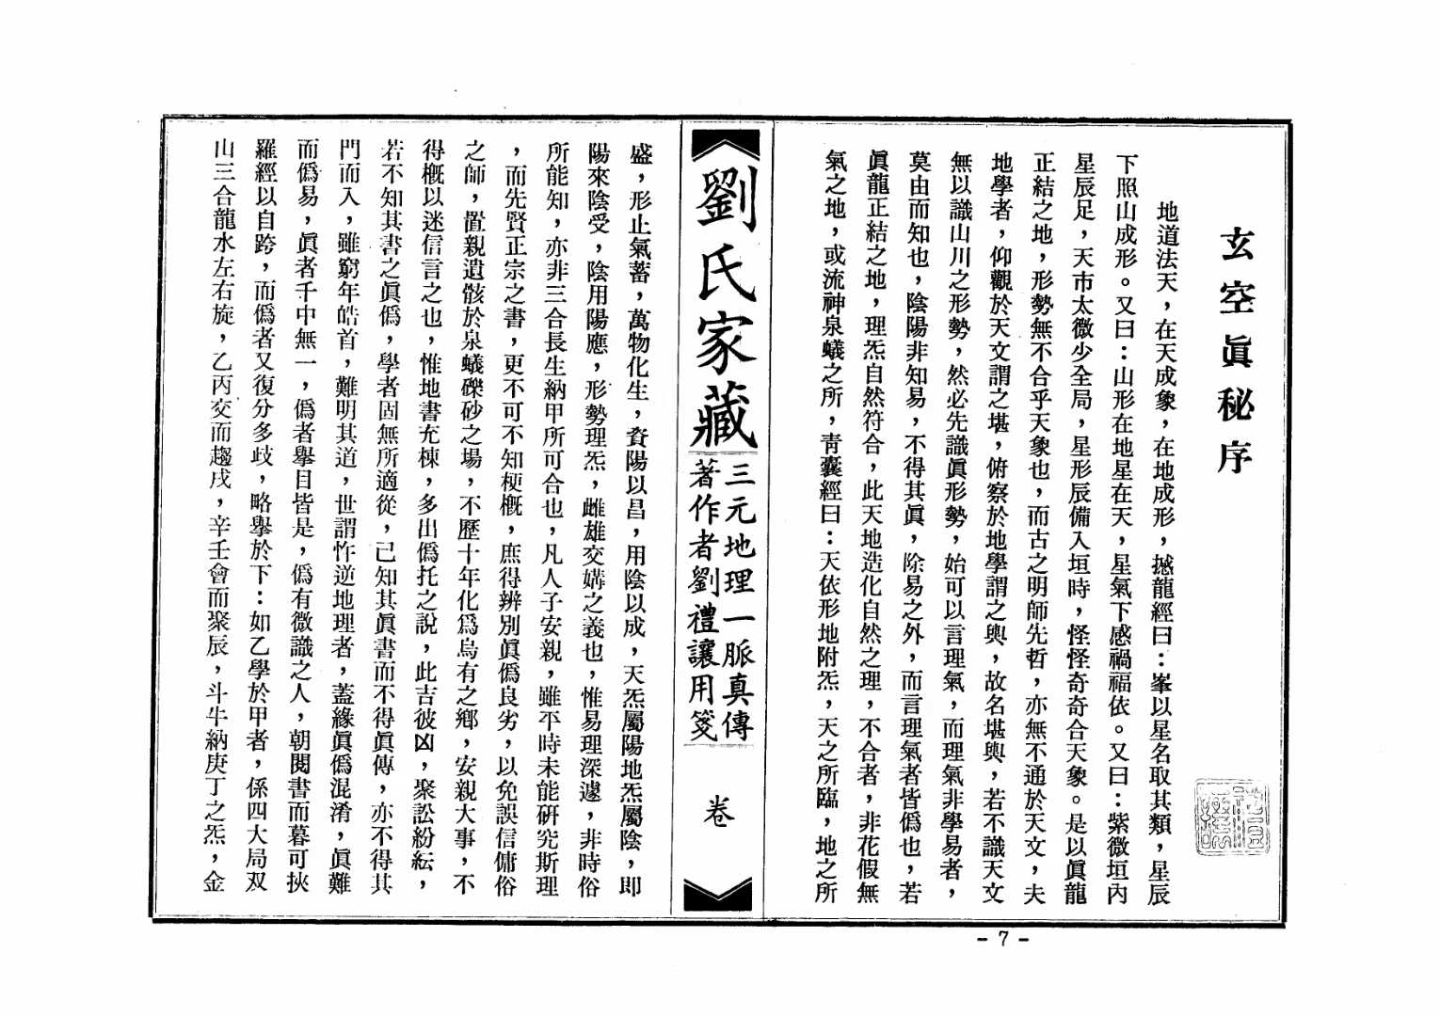 玄空眞秘序
地道法天，在天成象，在地成形，撼龍經曰：峯以星名取其類，星辰
下照山成形。又曰：山形在地星在天，星氣下感禍福依。又曰：紫微垣內
星辰足，天市太微少全局，星形辰備入垣時，怪怪奇奇合天象。是以眞龍
正結之地，形勢無不合乎天象也，而古之明師先哲，亦無不通於天文，夫
地學者，仰觀於天文謂之堪，俯察於地學謂之輿，故名堪輿，若不識天文
無以識山川之形勢，然必先識眞形勢，始可以言理氣，而理氣非學易者，
莫由而知也，陰陽非知易，不得其眞，除易之外，而言理氣者皆僞也，若
眞龍正結之地，理炁自然符合，此天地造化自然之理，不合者，非花假無
氣之地，或流神泉蟻之所，靑囊經曰：天依形地附炁，天之所臨，地之所
劉氏家藏
三元地理一脈真傳
著作者劉禮讓用箋
卷
盛，形止氣蓄，萬物化生，資陽以昌，用陰以成，天炁屬陽地炁屬陰，即
陽來陰受，陰用陽應，形勢理炁，雌雄交媾之義也，惟易理深邃，非時俗
所能知，亦非三合長生納甲所可合也，凡人子安親，雖平時未能研究斯理
，而先賢正宗之書，更不可不知梗概，庶得辨別眞僞良劣，以免誤信傭俗
之師，置親遺骸於泉蟻礫砂之場，不歷十年化爲烏有之鄉，安親大事，不
得概以迷信言之也，惟地書充棟，多出僞托之說，此吉彼凶，聚訟紛紜，
若不知其書之眞僞，學者固無所適從，己知其眞書而不得眞傳，亦不得其
門而入，雖窮年皓首，難明其道，世謂忤逆地理者，蓋緣眞僞混淆，眞難
而僞易，眞者千中無一，僞者擧目皆是，僞有微識之人，朝閱書而暮可挾
羅經以自跨，而僞者又復分多歧，略擧於下：如乙學於甲者，係四大局双
山三合龍水左右旋，乙丙交而趨戍，辛壬會而聚辰，斗牛納庚丁之炁，金
- 7 -